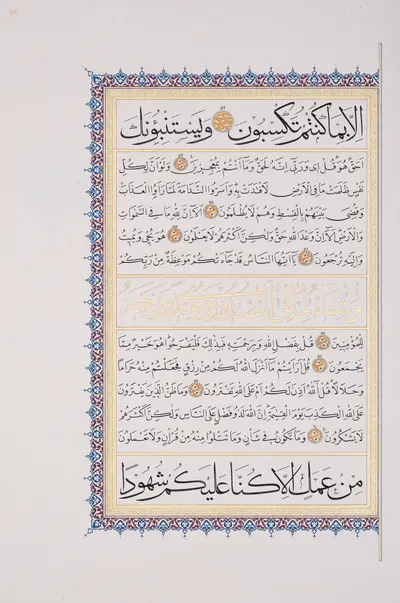 إلا بما كنتم تكسبون ويستنبؤنك
أحق هو قل إى وربى إنه لحق وما أنتم بمعجزين ولو أن لكل
نفس ظلمت ما فى الأرض لافتدت به وأسروا الندامة لما رأوا العذاب
وقضى بينهم بالقسط وهم لا يظلمون ألا إن لله ما فى السموات
والأرض ألا إن وعد الله حق ولكن أكثرهم لا يعلمون هو يحيى ويميت
وإليه ترجعون يا أيها الناس قد جاءتكم موعظة من ربكم
وشفاء لما فى الصدور وهدى ورحمة
للمؤمنين قل بفضل الله وبرحمته فبذلك فليفرحوا هو خير مما
يجمعون قل أرأيتم ما أنزل الله لكم من رزق فجعلتم منه حراما
وحلالا قل آلله أذن لكم أم على الله تفترون وما ظن الذين يفترون
على الله الكذب يوم القيمة إن الله لذو فضل على الناس ولكن أكثرهم
لا يشكرون وما تكون فى شأن وما تتلوا منه من قرآن ولا تعملون
من عمل إلا كنا عليكم شهودا